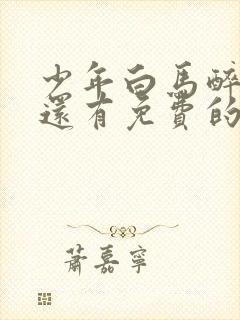 少年白馬醉
還有免費的
蕭嘉寧